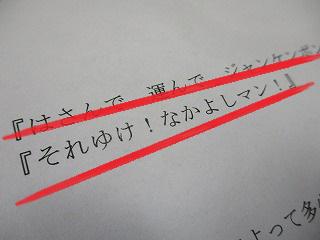 『はさんで 運んで ジャンケンポン
『それゆけ!なかよしマン!』
よって多